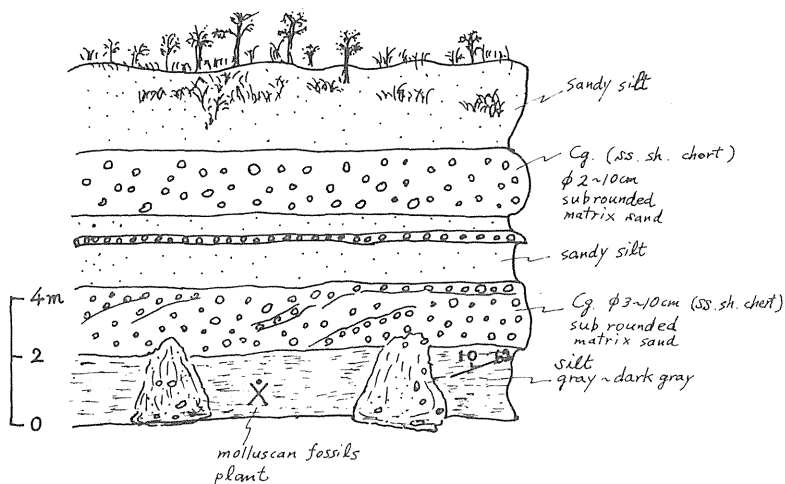 sandy silt
Cg. (ss. sh. chert)
φ 2~10cm
subrounded
matrix sand
sandy silt
4m
Cg. φ3~10cm (ss. sh. chert)
sub rounded
matrix sand
2
silt
gray~dark gray
0
molluscan fossils
plant